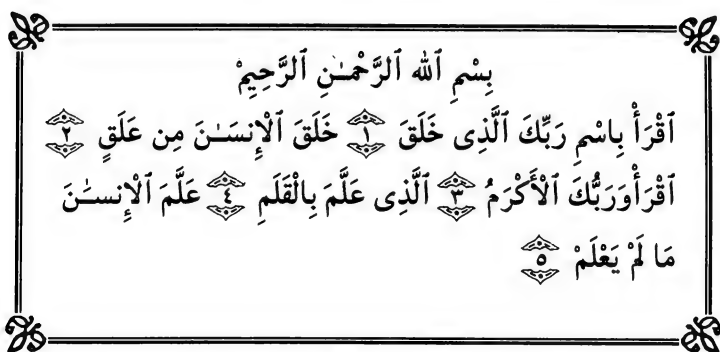 بِسْمِ ٱللّٰهِ ٱلرَّحْمَـٰنِ ٱلرَّحِيمِْ
ٱقْرَأْ بِاسْمِ رَبِّكَ ٱلَّذِى خَلَقَ ١ خَلَقَ ٱلْإِنسَـٰنَ مِن عَلَقٍ ٢
ٱقْرَأْوَرَبُّكَ ٱلْأَكْرَمُ ٣ ٱلَّذِى عَلَّمَ بِالْقَلَمِ ٤ عَلَّمَ ٱلْإِنسـٰنَ
مَا لَمْ يَعْلَمْ ٥